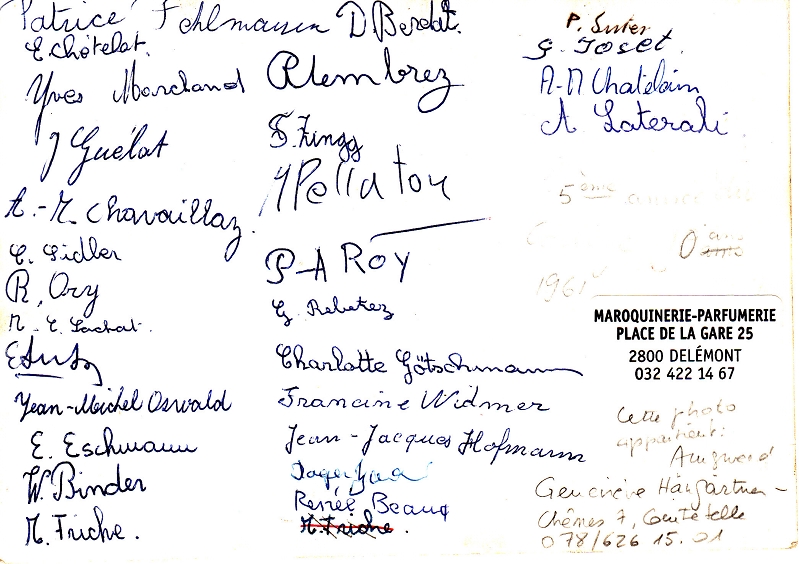 Patrice Fehlmann D Berdat.
E Chôtelat.
Yves Marchand
J Guélat
A.-M. Chavaillaz.
C. Sidler
R. Ory
M. C. Lachat.
Jean-Michel Oswald
E. Eschmann
W. Binder
M. Friche.
Rlembrez
F. Zingg
Pellaton
P-A Roy
G. Rebetez
Charlotte Götschmann
Francine Widmer
Jean-Jacques Hofmann
Roger
Renée Beauq
M. Friche.
P. Suter
G. Joset.
A-M Chatelain
A Laterali
5ème
0 ans
1961
MAROQUINERIE-PARFUMERIE
PLACE DE LA GARE 25
2800 DELÉMONT
032 422 14 67
Cette photo
appartient:
Geneviève Hängartner -
Chênes 7, Courtételle
078/626 15.01